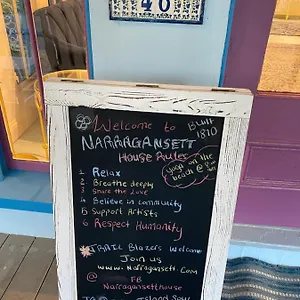 40
Welcome to
BUILT
1810
NARRAGANSETT
House Rules
1 Relax
2 Breathe deeply
3 Share the Love
4 Believe in community
5 Support Artists
6 Respect Humanity
yoga on the
beach @
TRAIL Blazers Welcome
Join us
www.Narragansett.com
@ FB
Narragansetthouse
Island Soul